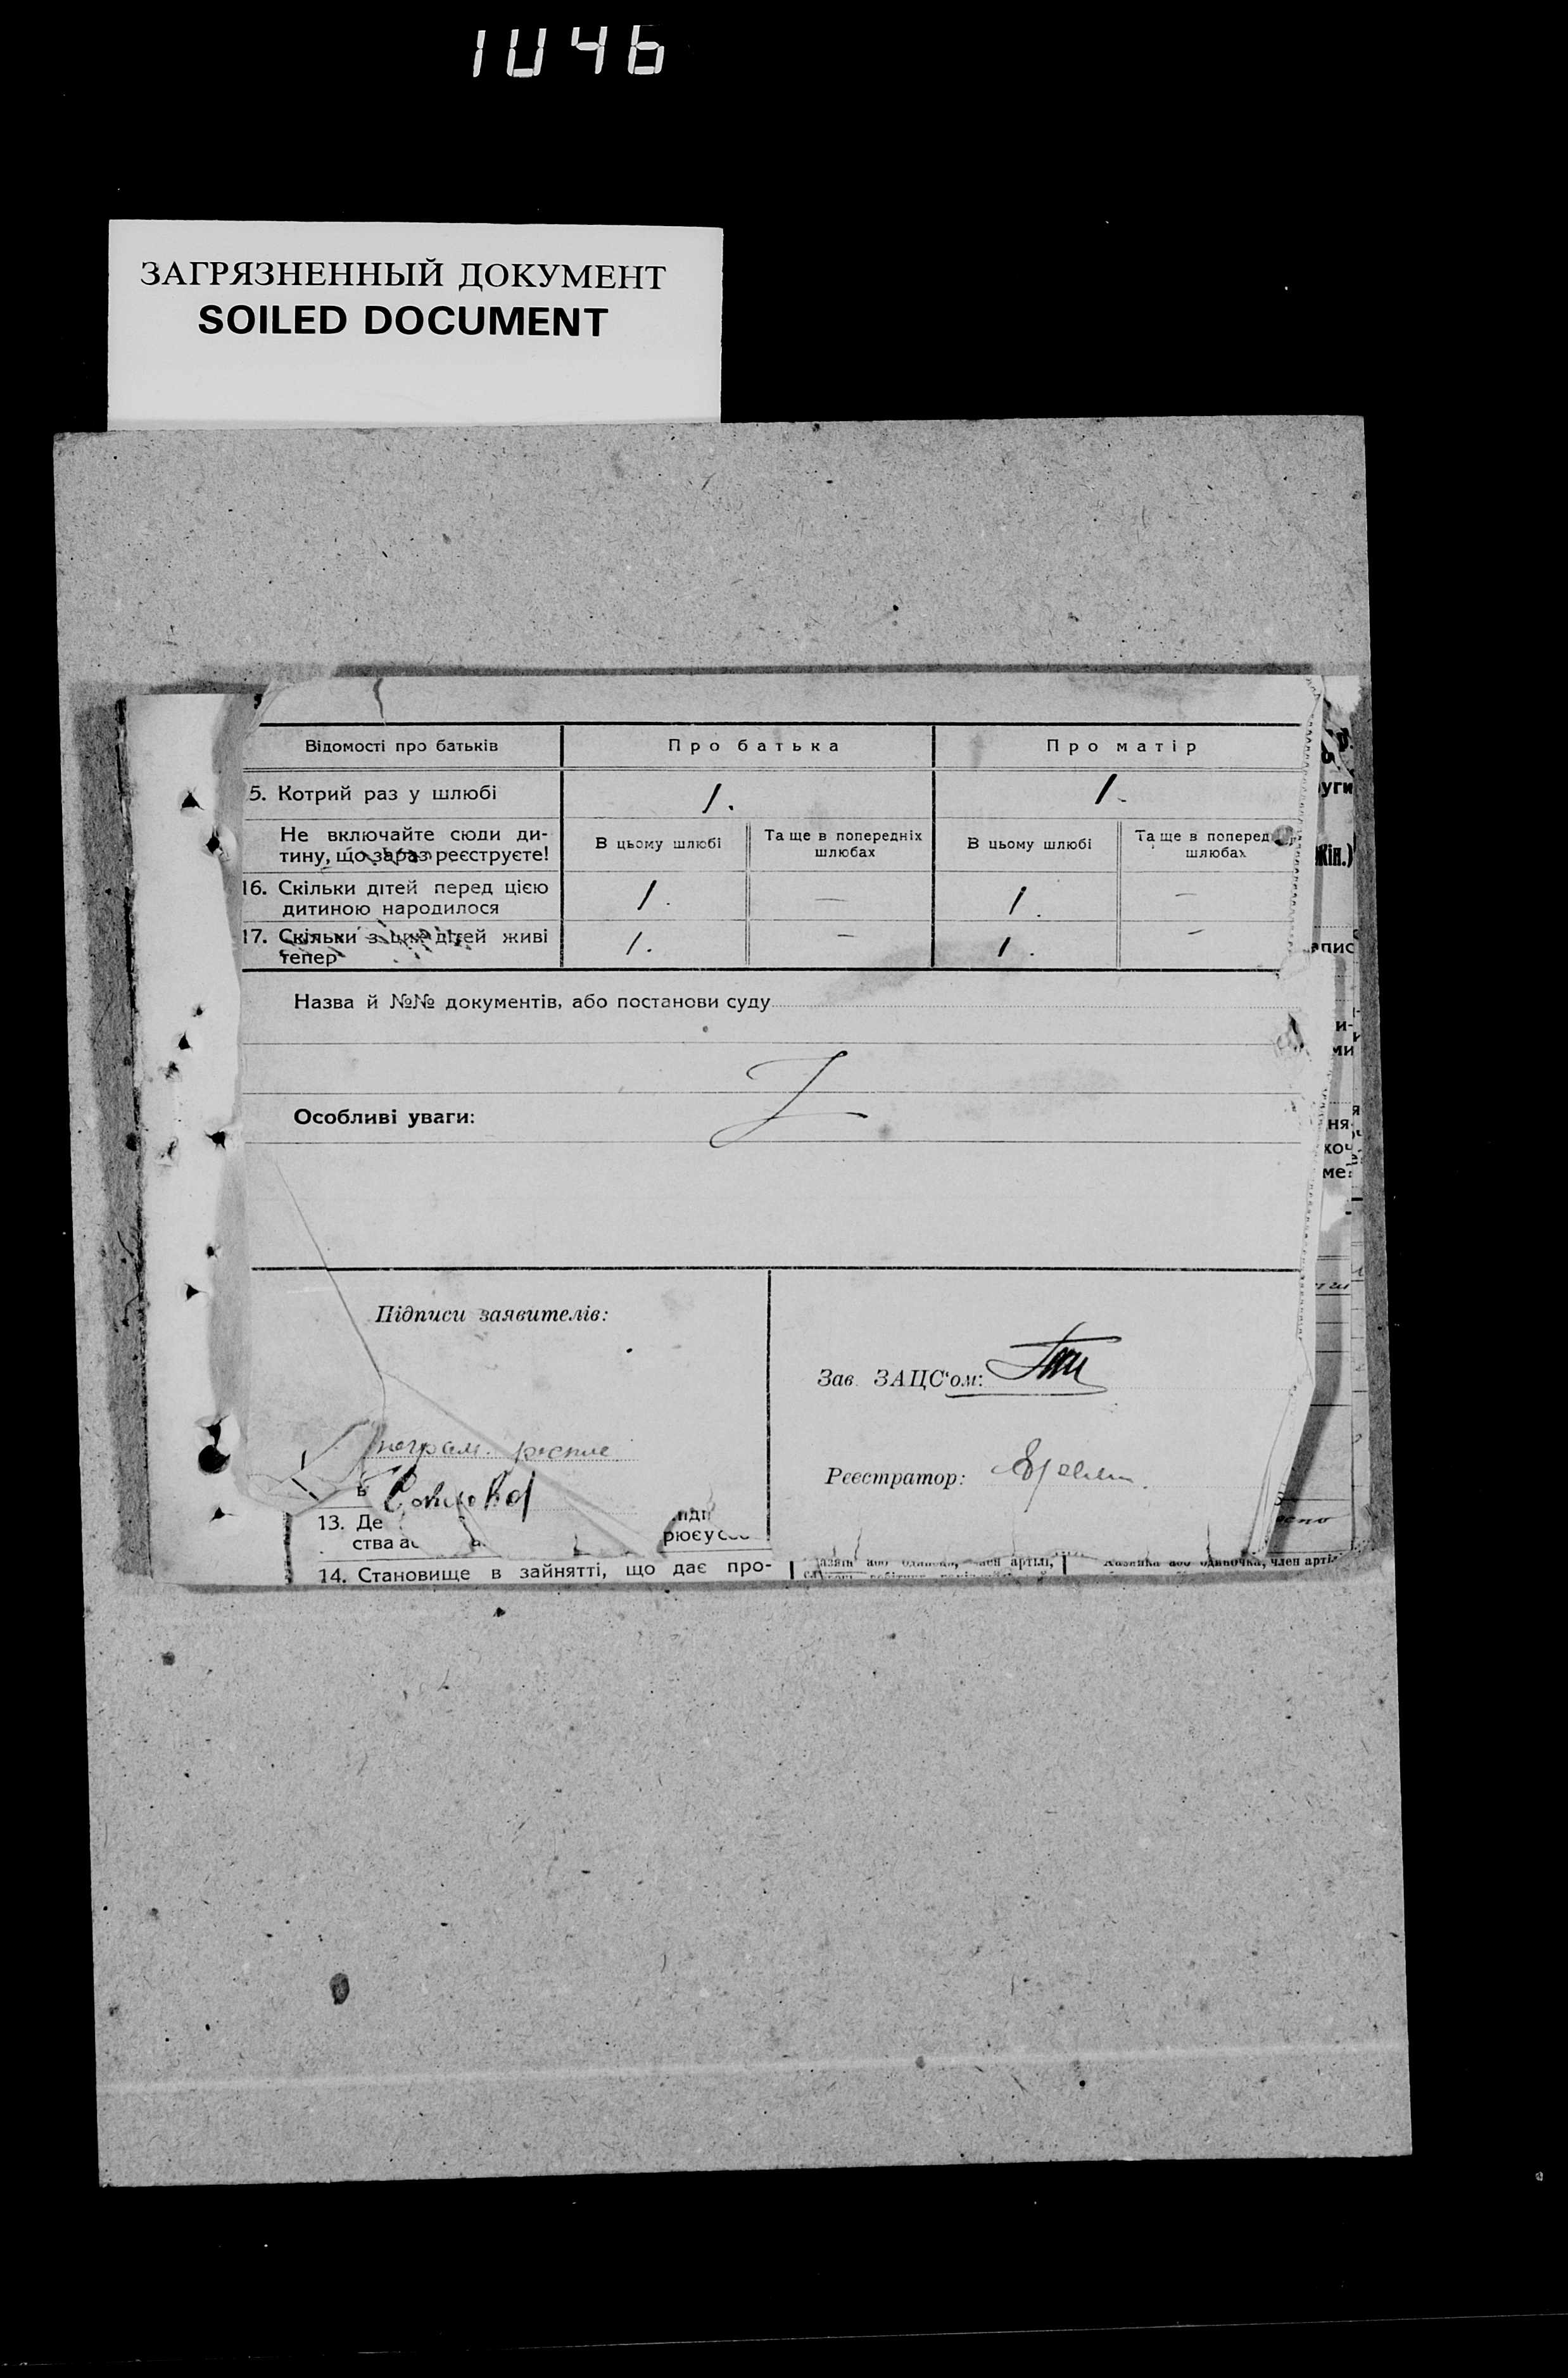 1046
ЗАГРЯЗНЕННЫЙ ДОКУМЕНТ
SOILED DOCUMENT
Відомості про батьків Про батька Про матір
5. Котрий раз у шлюбі 1. 1.
Не включайте сюди ди-
тину, що зараз реєструєте!
В цьому шлюбі Та ще в попередніх
шлюбах
В цьому шлюбі Та ще в поперед
шлюбах
16. Скільки дітей перед цією
дитиною народилося 1. — 1. —
17. Скільки з цих дітей живі
тепер 1. — 1. —
Назва й №№ документів, або постанови суду
Особливі уваги:
Підписи заявителів:
Зав. ЗАЦС'ом:
Реєстратор:
13. Де
ства
рюєу
14. Становище в зайнятті, що дає про-
член арті
уги
Жін.)
пис
ми
ня
хоч
ме